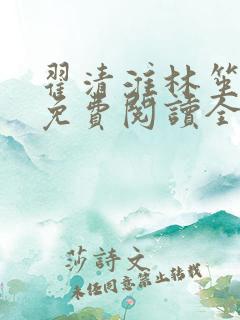 翟清淮林笙
免費閱讀全
莎詩文
未經同意禁止轉載